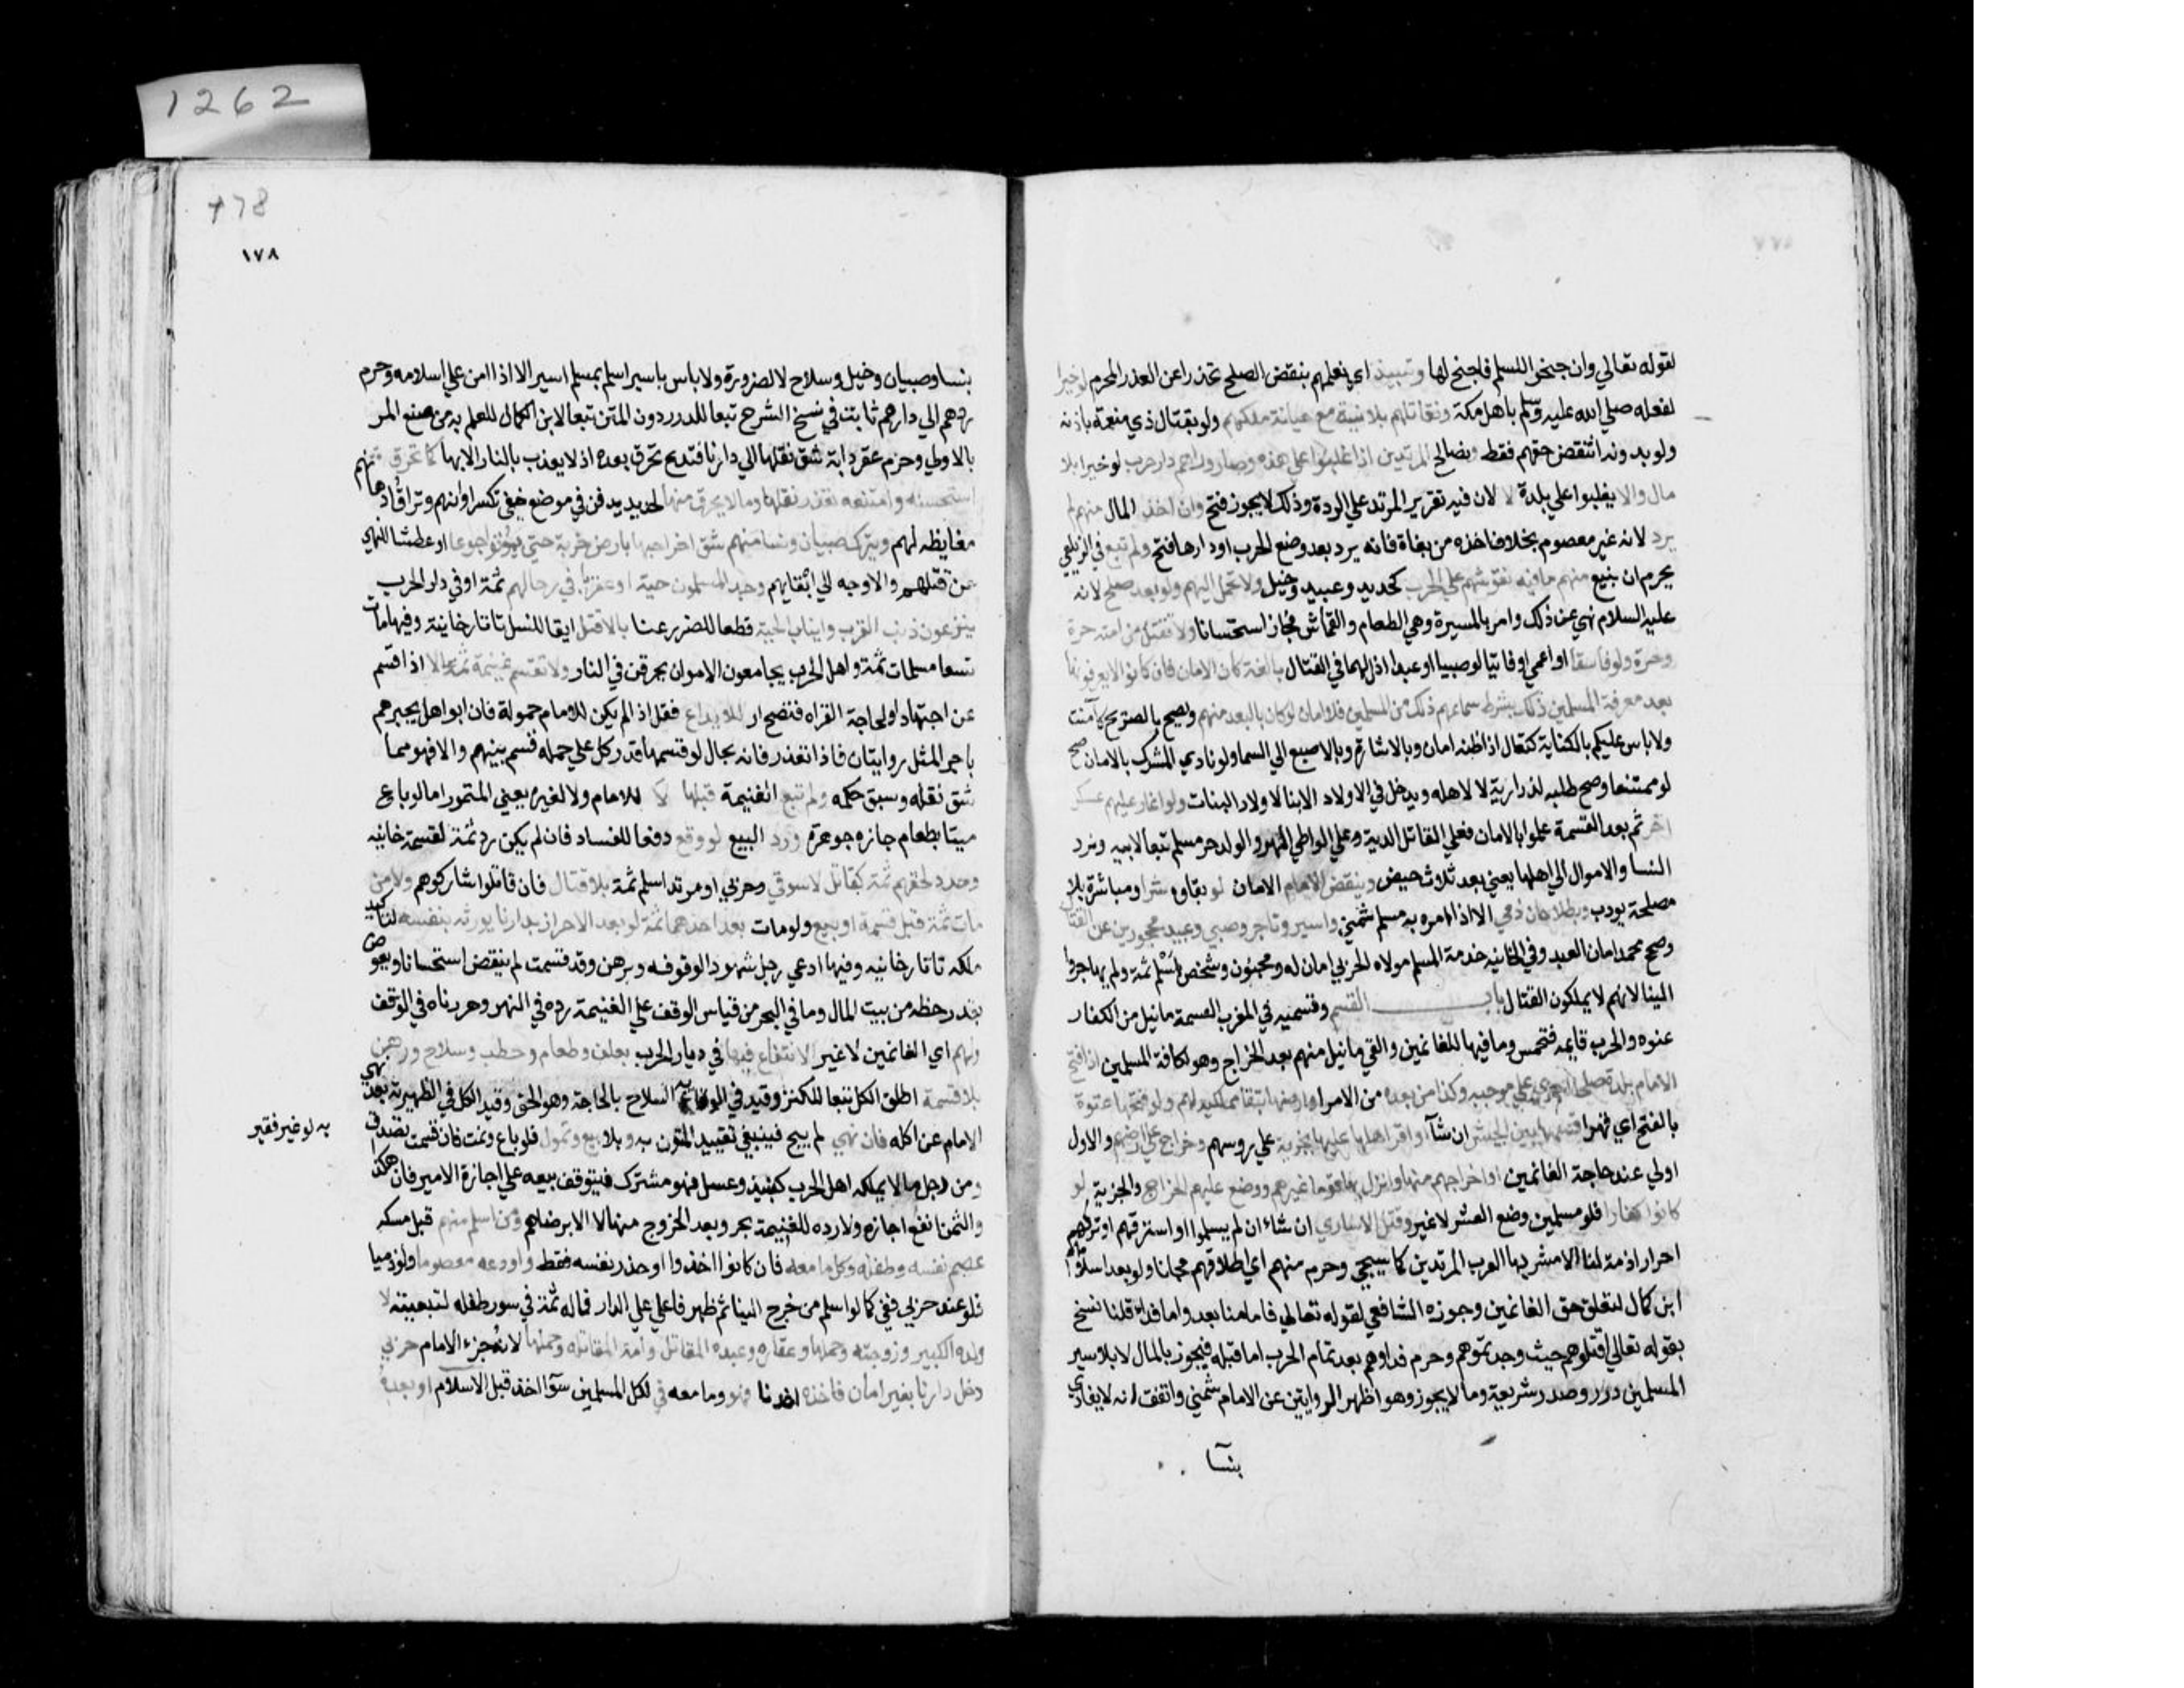 1262
لقوله تعالي وان جنحوا للسلم فاجنح لها وتنبيذ اي نعلمهم بنقض الصلح تحذرا عن الغدر المحرم لو خيرا
لفعله صلي الله عليه وسلم باهل مكة ونقاتلهم بلا نبذ مع خيانة ملكهم ولو بقتال ذي منعة باذنه
ولو بدونه انتقض حقهم فقط ونصالح المرتدين اذا غلبوا علي بلدة وصار دارهم دار حرب لو خيرا بلا
مال والا يغلبوا علي بلدة لا لان فيه تقرير المرتد علي الردة وذلك لا يجوز فتح وان اخذ المال منهم لم
يرد لانه غير معصوم بخلاف اخذه من بغاة فانه يرد بعد وضع الحرب اوزارها فتح ولم تبع في الزيلعي
يحرم ان نبيع منهم ما فيه تقويتهم علي الحرب كحديد وعبيد وخيل ولا نحمل اليهم ولو بعد صلح لانه
عليه السلام نهي عن ذلك وامر بالمسيرة وهي الطعام والقماش فجاز استحسانا ولا نقتل من امنه حر
وحرة ولو فاسقا او اعمي او فانيا او صبيا او عبدا اذن لهما في القتال باي لغة كان الامان فان كانوا لا يعرفونها
بعد معرفة المسلمين ذلك بشرط سماعهم ذلك من المسلمين فلا امان لو كان بالبعد منهم ويصح بالصريح كامنت
ولا باس عليكم بالكناية كتعال اذا ظنه امان وبالاشارة وبالاصبع الي السما ولو نادي المشرك بالامان صح
لو ممتنعا وصح طلبه لذراريه لا لاهله ويدخل في الاولاد الابنا لا اولاد البنات ولو اغار عليهم عسكر
اخر ثم بعد القسمة علموا بالامان فعلي القاتل الدية وعلي الواطي المهر والولد حر مسلم تبعا لابيه وترد
النسا والاموال الي اهلها يعني بعد ثلاث حيض وينقض الامام الامان لو بقاوه شرا ومباشره بلا
مصلحة يودب وبطل امان ذمي الا اذا امره به مسلم شمني واسير وتاجر وصبي وعبيد محجورين عن القتال
وصح محمد امان العبد وفي الخانيه خدمة المسلم مولاه الحربي امان له ومجنون وشخص اسلم ثمة ولم يهاجر
الينا لانهم لا يملكون القتال باب القسم وقسمته في المغرب الغنيمة ما نيل من الكفار
عنوه والحرب قايمه فتخمس وما فيها للغانمين والفي ما نيل منهم بعد الخراج وهو لكافة المسلمين اذا فتح
الامام بلدة صلحا جري علي موجبه وكذا من بعده من الامرا وارضها تبقي مملوكة لهم ولو فتحها عنوة
بالفتح اي قهرا قسمها بين الجيش ان شآ او اقر اهلها عليها بجزية علي روسهم وخراج علي ارضهم والاول
اولي عند حاجة الغانمين او اخراجهم منها وانزل بها قوما غيرهم ووضع عليهم الخراج والجزية لو
كانوا كفارا فلو مسلمين وضع العشر لا غير وقتل الاساري ان شاء ان لم يسلموا او استرقهم او تركهم
احرارا ذمة لنا الا مشركي العرب المرتدين كما سيجي وحرم منهم اي اطلاقهم مجانا ولو بعد اسلامهم
ابن كمال لتعلق حق الغانمين وجوزه الشافعي لقوله تعالي فاما منا بعد واما فداء قلنا نسخ
بقوله تعالي اقتلوهم حيث وجدتموهم وحرم فداوهم بعد تمام الحرب اما قبله فيجوز بالمال لا بالاسير
المسلمين درر وصدر شريعة وقالا يجوز وهو اظهر الروايتين عن الامام شمني واتفق انه لا يفادي
بنسا
178
١٧٨
بنسا وصبيان وخيل وسلاح الا لضرورة ولا باس باسير اسلم بمسلم اسير الا اذا امن علي اسلامه وحرم
ردهم الي دارهم ثابت في نسخ الشرح تبعا للدرر دون المتن تبعا لابن الكمال للعلم به من منع المن
بالاولي وحرم عقر دابة شق نقلها الي دارنا فتذبح وتحرق بعده اذ لا يعذب بالنار الا ربها كما تحرق
اسلحته وامتعة تعذر نقلها وما لا يحرق منها كحديد يدفن في موضع خفي وتكسر اوانيهم وتراق ادهانهم
مغايظة لهم ويترك صبيان ونسا منهم شق اخراجهم بارض خربة حتي يموتوا جوعا او عطشا للنهي
عن قتلهم والاوجه الي ابقايهم وجد المسلمون حية او عقربا في رحالهم ثمة او في دار الحرب
ينزعون ذنب العقرب وانياب الحية قطعا للضرر عنا بلا قتل ابقا للنسل تاتارخانيه وفيها مات
نسا مسلمات ثمة واهل الحرب يجامعون الاموات يحرقن في النار ولا تقسم غنيمة ثمة الا اذا قسم
عن اجتهاد او لحاجة الغزاه فتصح او للايداع فتحل اذا لم يكن للامام حمولة فان ابوا هل يجبرهم
باجر المثل روايتان فاذا تعذر فانه بحال لو قسمها قدر كل علي حمله قسم بينهم والا فهو مما
شق نقله وسبق حكمه ولم تبع الغنيمة قبلها لا للامام ولا لغيره يعني للتمول اما لو باع
شيا بطعام جازه جوهرة ورد البيع لو وقع دفعا للفساد فان لم يكن رد ثمنه لقسمة خانيه
ومدد لحقهم ثمة كمقاتل لا سوقي وحربي او مرتد اسلم ثمة بلا قتال فان قاتلوا شاركوهم ولا من
مات ثمة قبل قسمة او بيع ولو مات بعد احدهما ثمة او بعد الاحراز بدارنا يورث نصيبه لتاكيد
ملكه تاتارخانيه وفيها ادعي رجل شهود الوقوفه وبرهن وقد قسمت لم ينقض استحسانا ويعوض
بقدر حظه من بيت المال وما في البحر من قياس الوقف علي الغنيمة رده في النهر وحررناه في الوقف
ولهم اي الغانمين لا غير الانتفاع فيها في ديار الحرب بعلف وطعام وحطب وسلاح ودهن
بلا قسمة اطلق الكل تبعا للكنز وقيد في الوقاية السلاح بالحاجة وهو الحق وقيد الكل في الظهيرية بعد نهي
الامام عن اكله فان نهي لم يبح فينبغي تقييد المتون به وبلا بيع وتمول فلو باع رد ثمنه فان قسمت تصدق
به لو غير فقير
ومن وجد ما لا يملكه اهل الحرب كصيد وعسل فهو مشترك فيتوقف بيعه علي اجازة الامير فان هلك
والثمن انفع اجازه ولا رده للغنيمة بحر وبعد الخروج منها لا الا برضاهم ومن اسلم منهم قبل مسكه
عصم نفسه وطفله وكل ما معه فان كانوا اخذوا احرز نفسه فقط او اودعه معصوما ولو ذميا
فلو عند حربي ففي كما لو اسلم من خرج الينا ثم ظهرنا علي الدار فماله ثمة في سوي طفله لتبعيته لا
ولده الكبير وزوجته وحملها وعقاره وعبده المقاتل وامته المقاتلة وحملها لانه جزء الام حربي
دخل دارنا بغير امان فاخذه احدنا فهو وما معه في لكل المسلمين سوآ اخذ قبل الاسلام او بعده